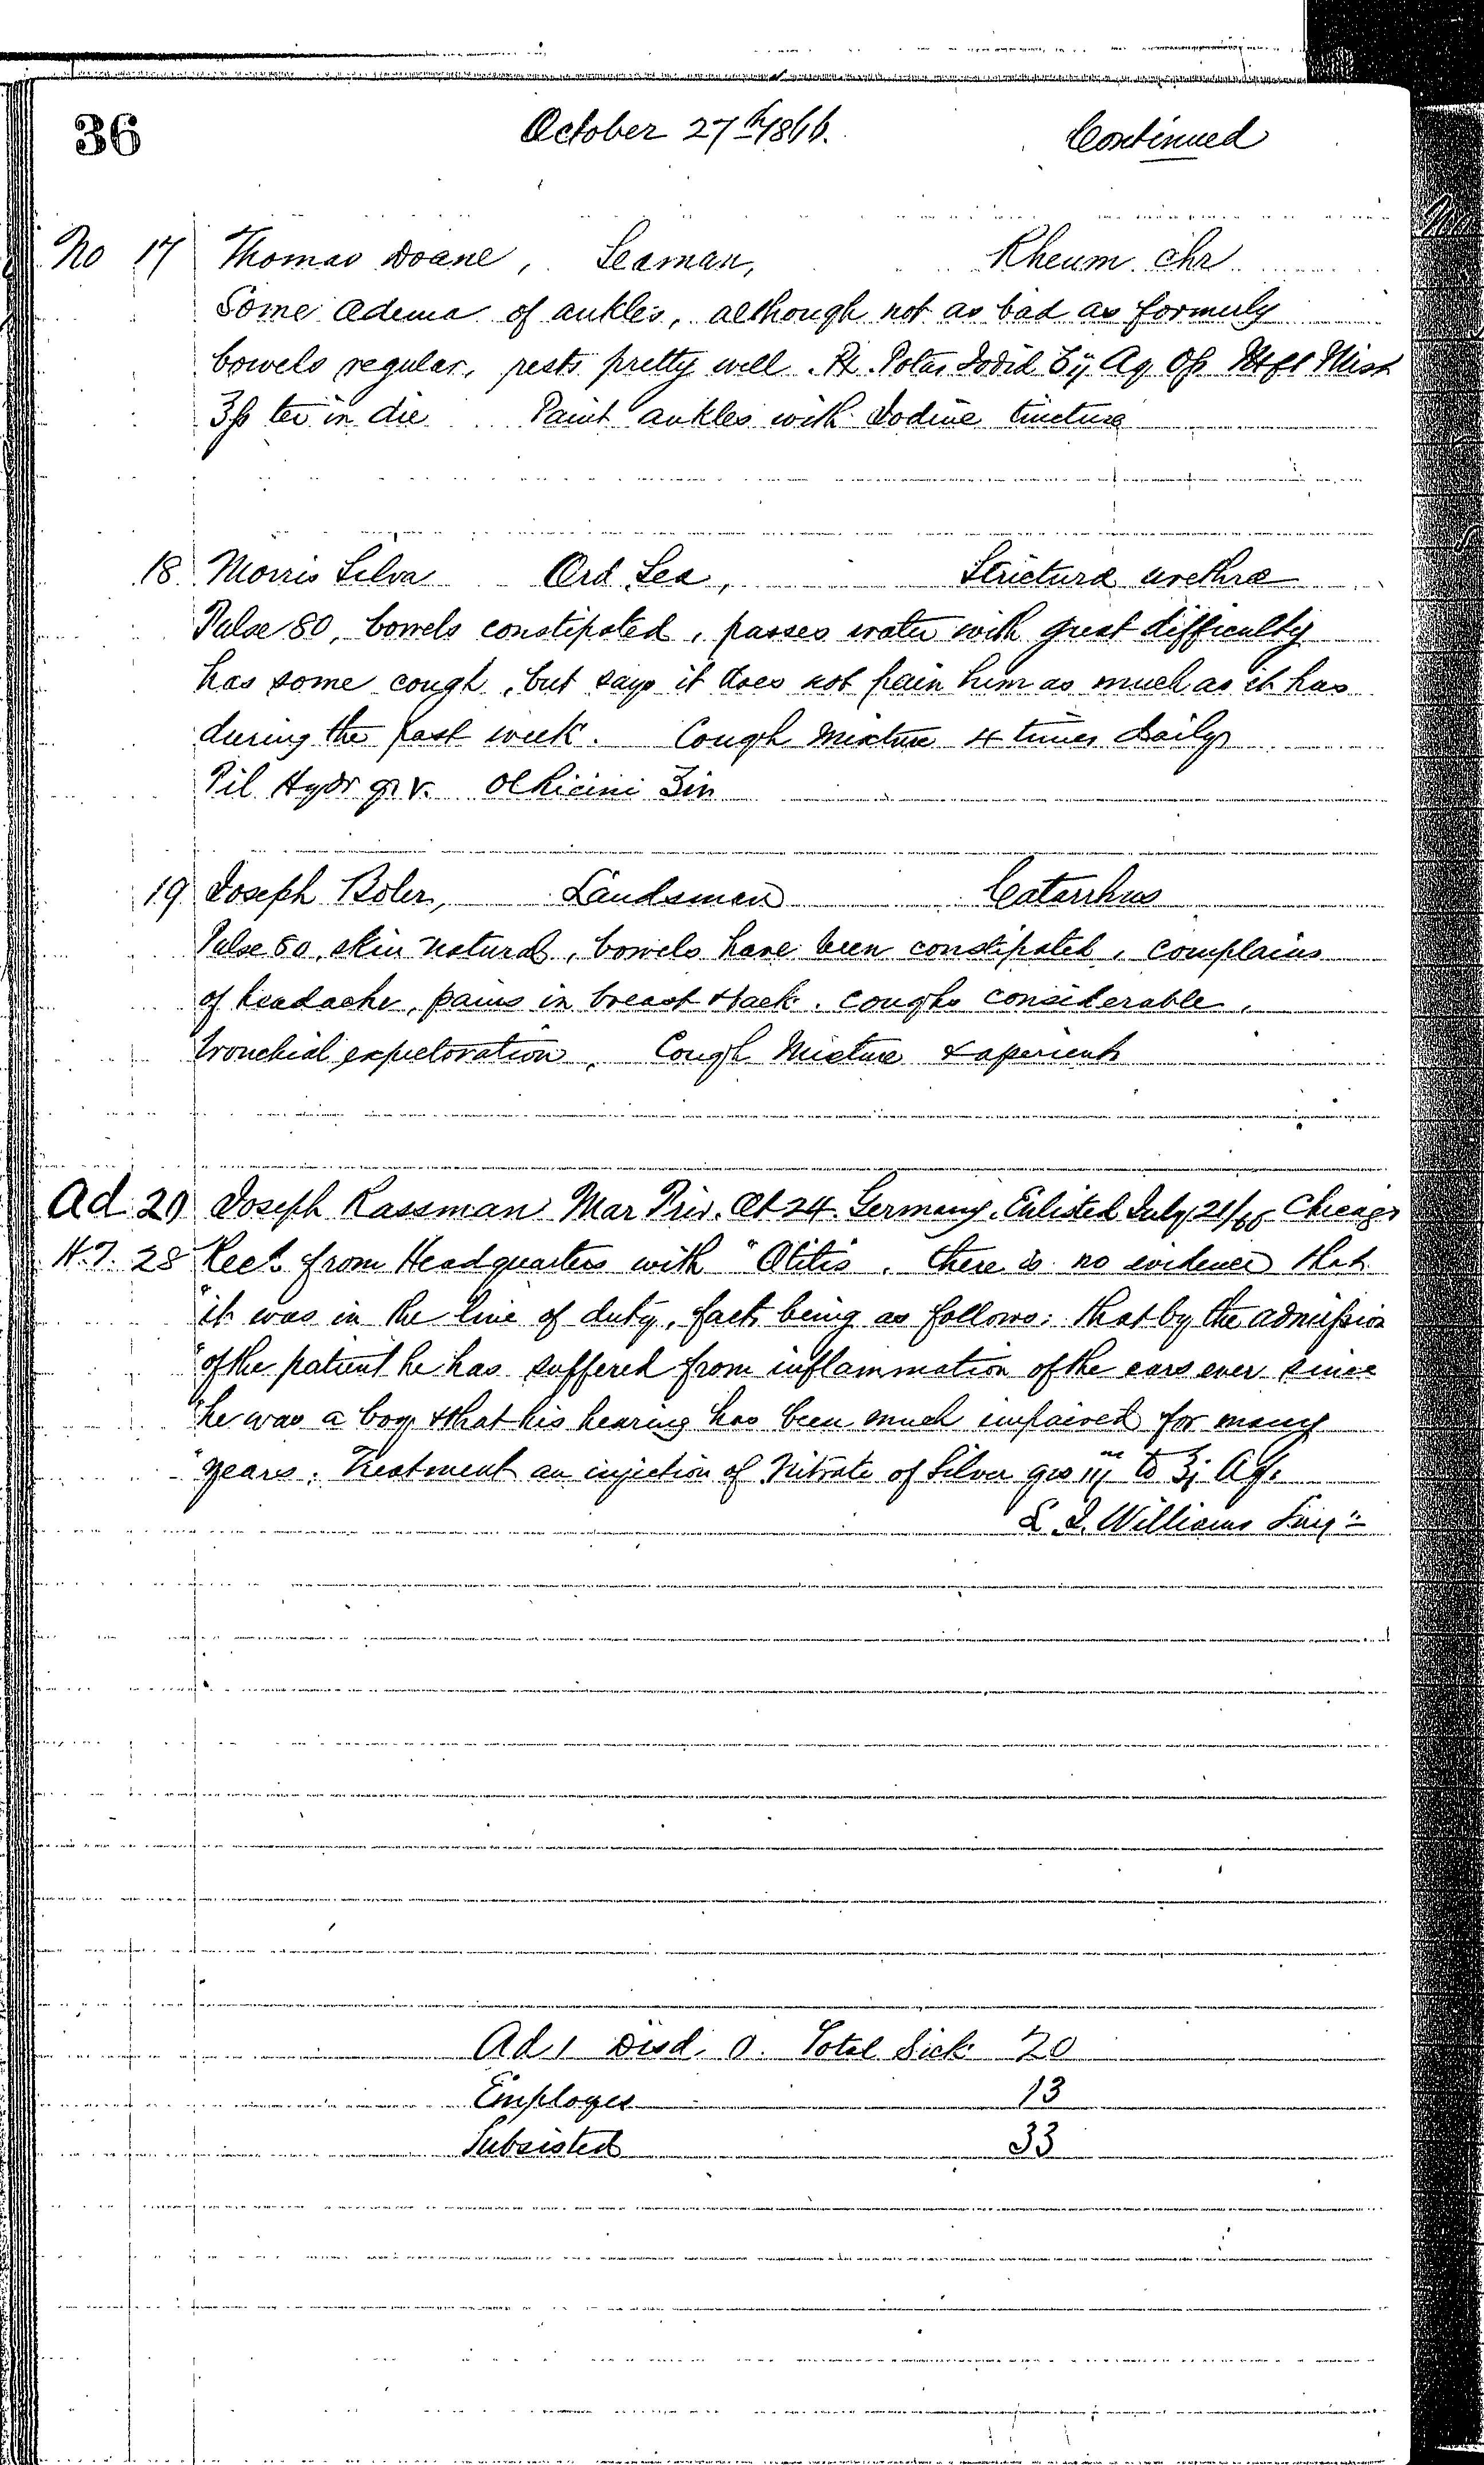 36 October 27th 1866. Continued
No 17 Thomas Doane, Seaman, Rheum. chr
Some Œdema of ankles, although not as bad as formerly
bowels regular, rests pretty well. Rx. Potas Iodid ʒij Aq Oſs Mft Mist
℥ſs ter in die Paint ankles with Iodine tincture
18 Morris Silva Ord Sea, Strictura urethræ
Pulse 80, bowels constipated, passes water with great difficulty
has some cough, but says it does not pain him as much as it has
during the past week. Cough Mixture 4 times daily
Pil Hydr gr v. Ol Ricini
19 Joseph Boler, Landsman Catarrhus
Pulse 80, skin natural, bowels have been constipated, complains
of headache, pains in breast & back. coughs considerable,
bronchial expectoration, Cough Mixture & aperients
Ad 20 Joseph Rassman Mar Priv. Æt 24. Germany. Enlisted July 21/66 Chicago
H.T. 28 Recd. from Headquarters with "Otitis. there is no evidence that
"it was in the line of duty, facts being as follows: that by the admission
"of the patient he has suffered from inflammation of the ears ever since
"he was a boy & that his hearing has been much impaired for many
"years. Treatment an injection of Nitrate of Silver grs iij to ℥j Aq.
Williams Surg"
Ad 1 Disd. 0. Total Sick 20
Employes 13
Subsisted 33